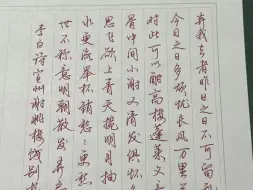 弃我去者昨日之日不可留
今日之日多烦忧长风万里
对此可以酣高楼蓬莱文
骨中间小谢又清发俱怀
思飞欲上青天揽明月抽
水更流举杯销愁愁更愁
世不称意明朝散发弄
李白诗宣州谢朓楼饯别